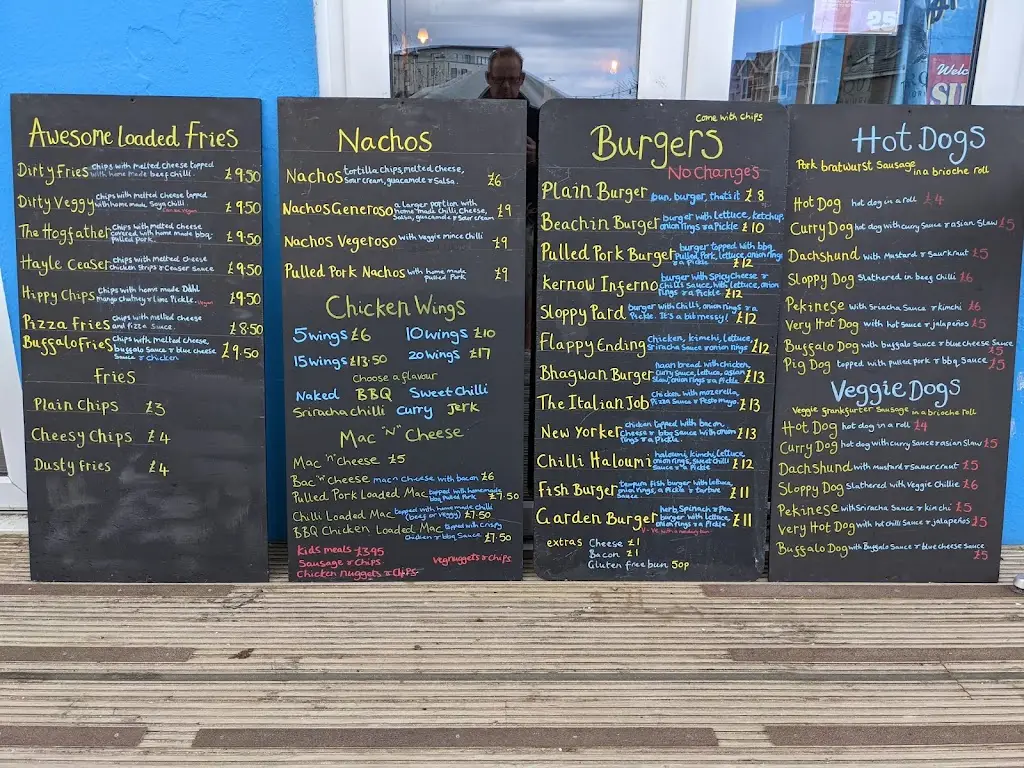 Awesome Loaded Fries
Dirty Fries Chips with melted cheese topped
with home made beef chilli. £9.50
Dirty Veggy Chips with melted cheese topped
with home made Soya Chilli £9.50
The Hogfather Chips with melted cheese
covered with home made bbq
Pulled Pork. £9.50
Hayle Ceaser Chips with melted cheese
chicken strips & Ceaser Sauce £9.50
Hippy Chips Chips with home made Dahl
mango chutney & Lime Pickle. Vegan £9.50
Pizza Fries Chips with melted cheese
and Pizza Sauce. £8.50
Buffalo Fries Chips with melted cheese,
buffalo sauce & blue cheese
Sauce & chicken £9.50
Fries
Plain Chips £3
Cheesy Chips £4
Dusty Fries £4
Nachos
Nachos tortilla chips, melted cheese,
Sour cream, guacamole & Salsa. £6
Nachos Generoso a larger portion with
home made Chilli, Cheese,
Salsa, guacamole & Sour cream £9
Nachos Vegeroso with veggie mince chilli £9
Pulled Pork Nachos with home made
Pulled Pork £9
Chicken Wings
5 wings £6 10 wings £10
15 wings £13.50 20 wings £17
Choose a flavour
Naked BBQ Sweet Chilli
Sriracha chilli Curry Jerk
Mac "N" Cheese
Mac "n" Cheese £5
Bac "n" Cheese mac n cheese with bacon £6
Pulled Pork Loaded Mac topped with homemade
bbq Pulled Pork £7.50
Chilli Loaded Mac topped with home made chilli
(beef or veggy) £7.50
BBQ Chicken Loaded Mac topped with crispy
chicken & bbq Sauce £7.50
Kids meals £3.95
Sausage & Chips Veg nuggets & chips
Chicken Nuggets & Chips
Come with chips
Burgers
No Changes
Plain Burger bun, burger, that's it £8
Beachin Burger burger with lettuce, ketchup
onion rings & a Pickle £10
Pulled Pork Burger burger topped with bbq
Pulled Pork, lettuce, onion
rings & a Pickle £12
Kernow Inferno burger with Spicy Cheese &
Chilli Sauce, with lettuce, onion
rings & a Pickle £12
Sloppy Pard burger with Chilli, onion rings & a
Pickle. It's a bit messy! £12
Flappy Ending Chicken, kimchi, lettuce,
Sriracha Sauce & onion rings £12
Bhagwan Burger naan bread with chicken,
curry Sauce, lettuce, asian
Slaw, onion rings & a Pickle £13
The Italian Job Chicken with mozerella,
Pizza Sauce & Pesto mayo. £13
New Yorker chicken topped with bacon
cheese & bbq Sauce with onion
rings & a Pickle. £13
Chilli Haloumi haloumi, kimchi, Lettuce,
onion rings, sweet chilli
Sauce & a Pickle £12
Fish Burger tempura fish burger with lettuce,
onion rings, a Pickle & tartare
Sauce £11
Garden Burger herb, Spinach & Pea
burger with lettuce
onion rings & a Pickle £11
extras Cheese £1
Bacon £1
Gluten free bun 50p
Hot Dogs
Pork bratwurst Sausage
in a brioche roll
Hot Dog hot dog in a roll £4
Curry Dog hot dog with curry Sauce & asian Slaw £5
Dachshund with Mustard & Saurkraut £5
Sloppy Dog Slathered in beef Chilli £6
Pekinese with Sriacha Sauce & kimchi £6
Very Hot Dog with hot Sauce & jalapeños £5
Buffalo Dog with buffalo Sauce & blue cheese Sauce
£5
Pig Dog topped with pulled pork & bbq Sauce £5
Veggie Dogs
Veggie frankfurter Sausage in a brioche roll
Hot Dog hot dog in a roll £4
Curry Dog hot dog with curry Sauce & asian Slaw £5
Dachshund with mustard & sauer craut £5
Sloppy Dog Slathered with Veggie Chillie £6
Pekinese with Sriracha Sauce & kimchi £5
Very Hot Dog with hot chilli Sauce & jalapeños £5
Buffalo Dog with Buffalo Sauce & blue cheese Sauce
£5
25